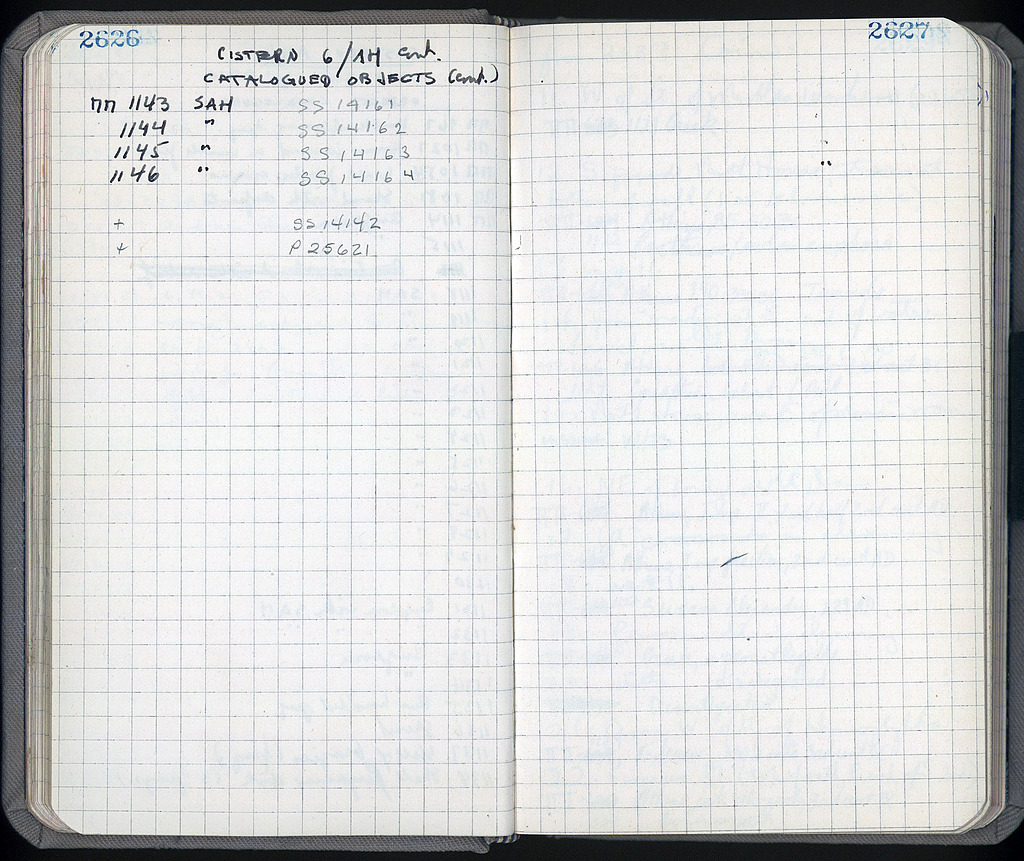 2626
CISTERN 6/ΛH Cont.
CATALOGUED OBJECTS (Cont.)
ΠΠ 1143 SAH SS 14161
1144 " SS 14162
1145 " SS 14163
1146 " SS 14164
+ SS 14142
+ P 25621
2627
"